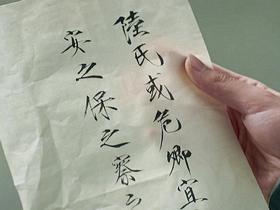 陸氏或危卿宜
安之保之察